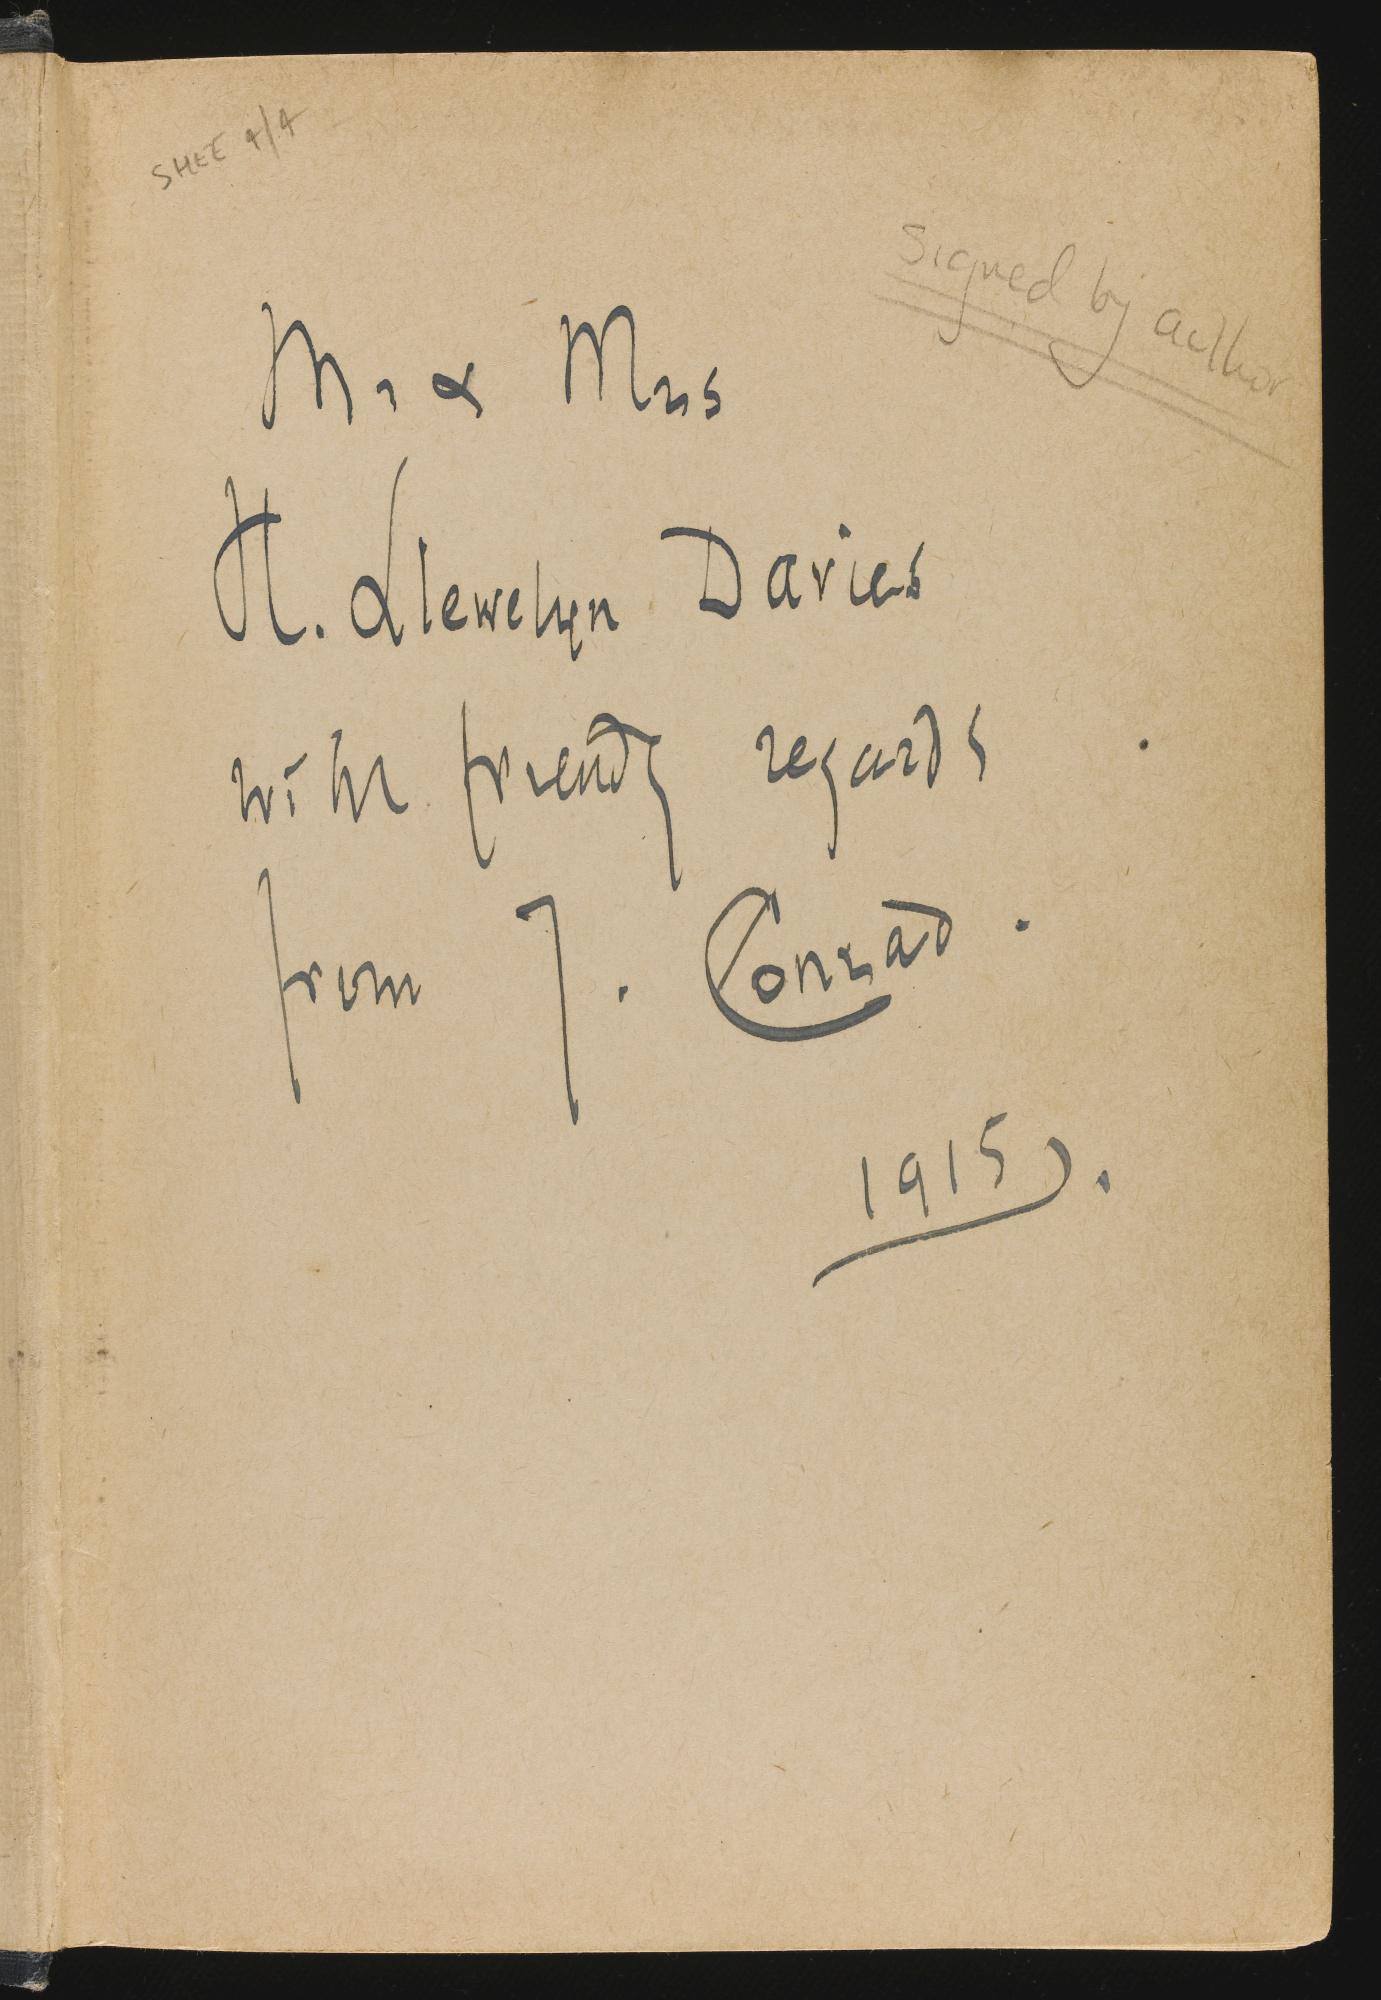 SHEE 4/4
Signed by author
Mr & Mrs
H. Llewelyn Davies
with friendly regards
from J. Conrad.
1915.